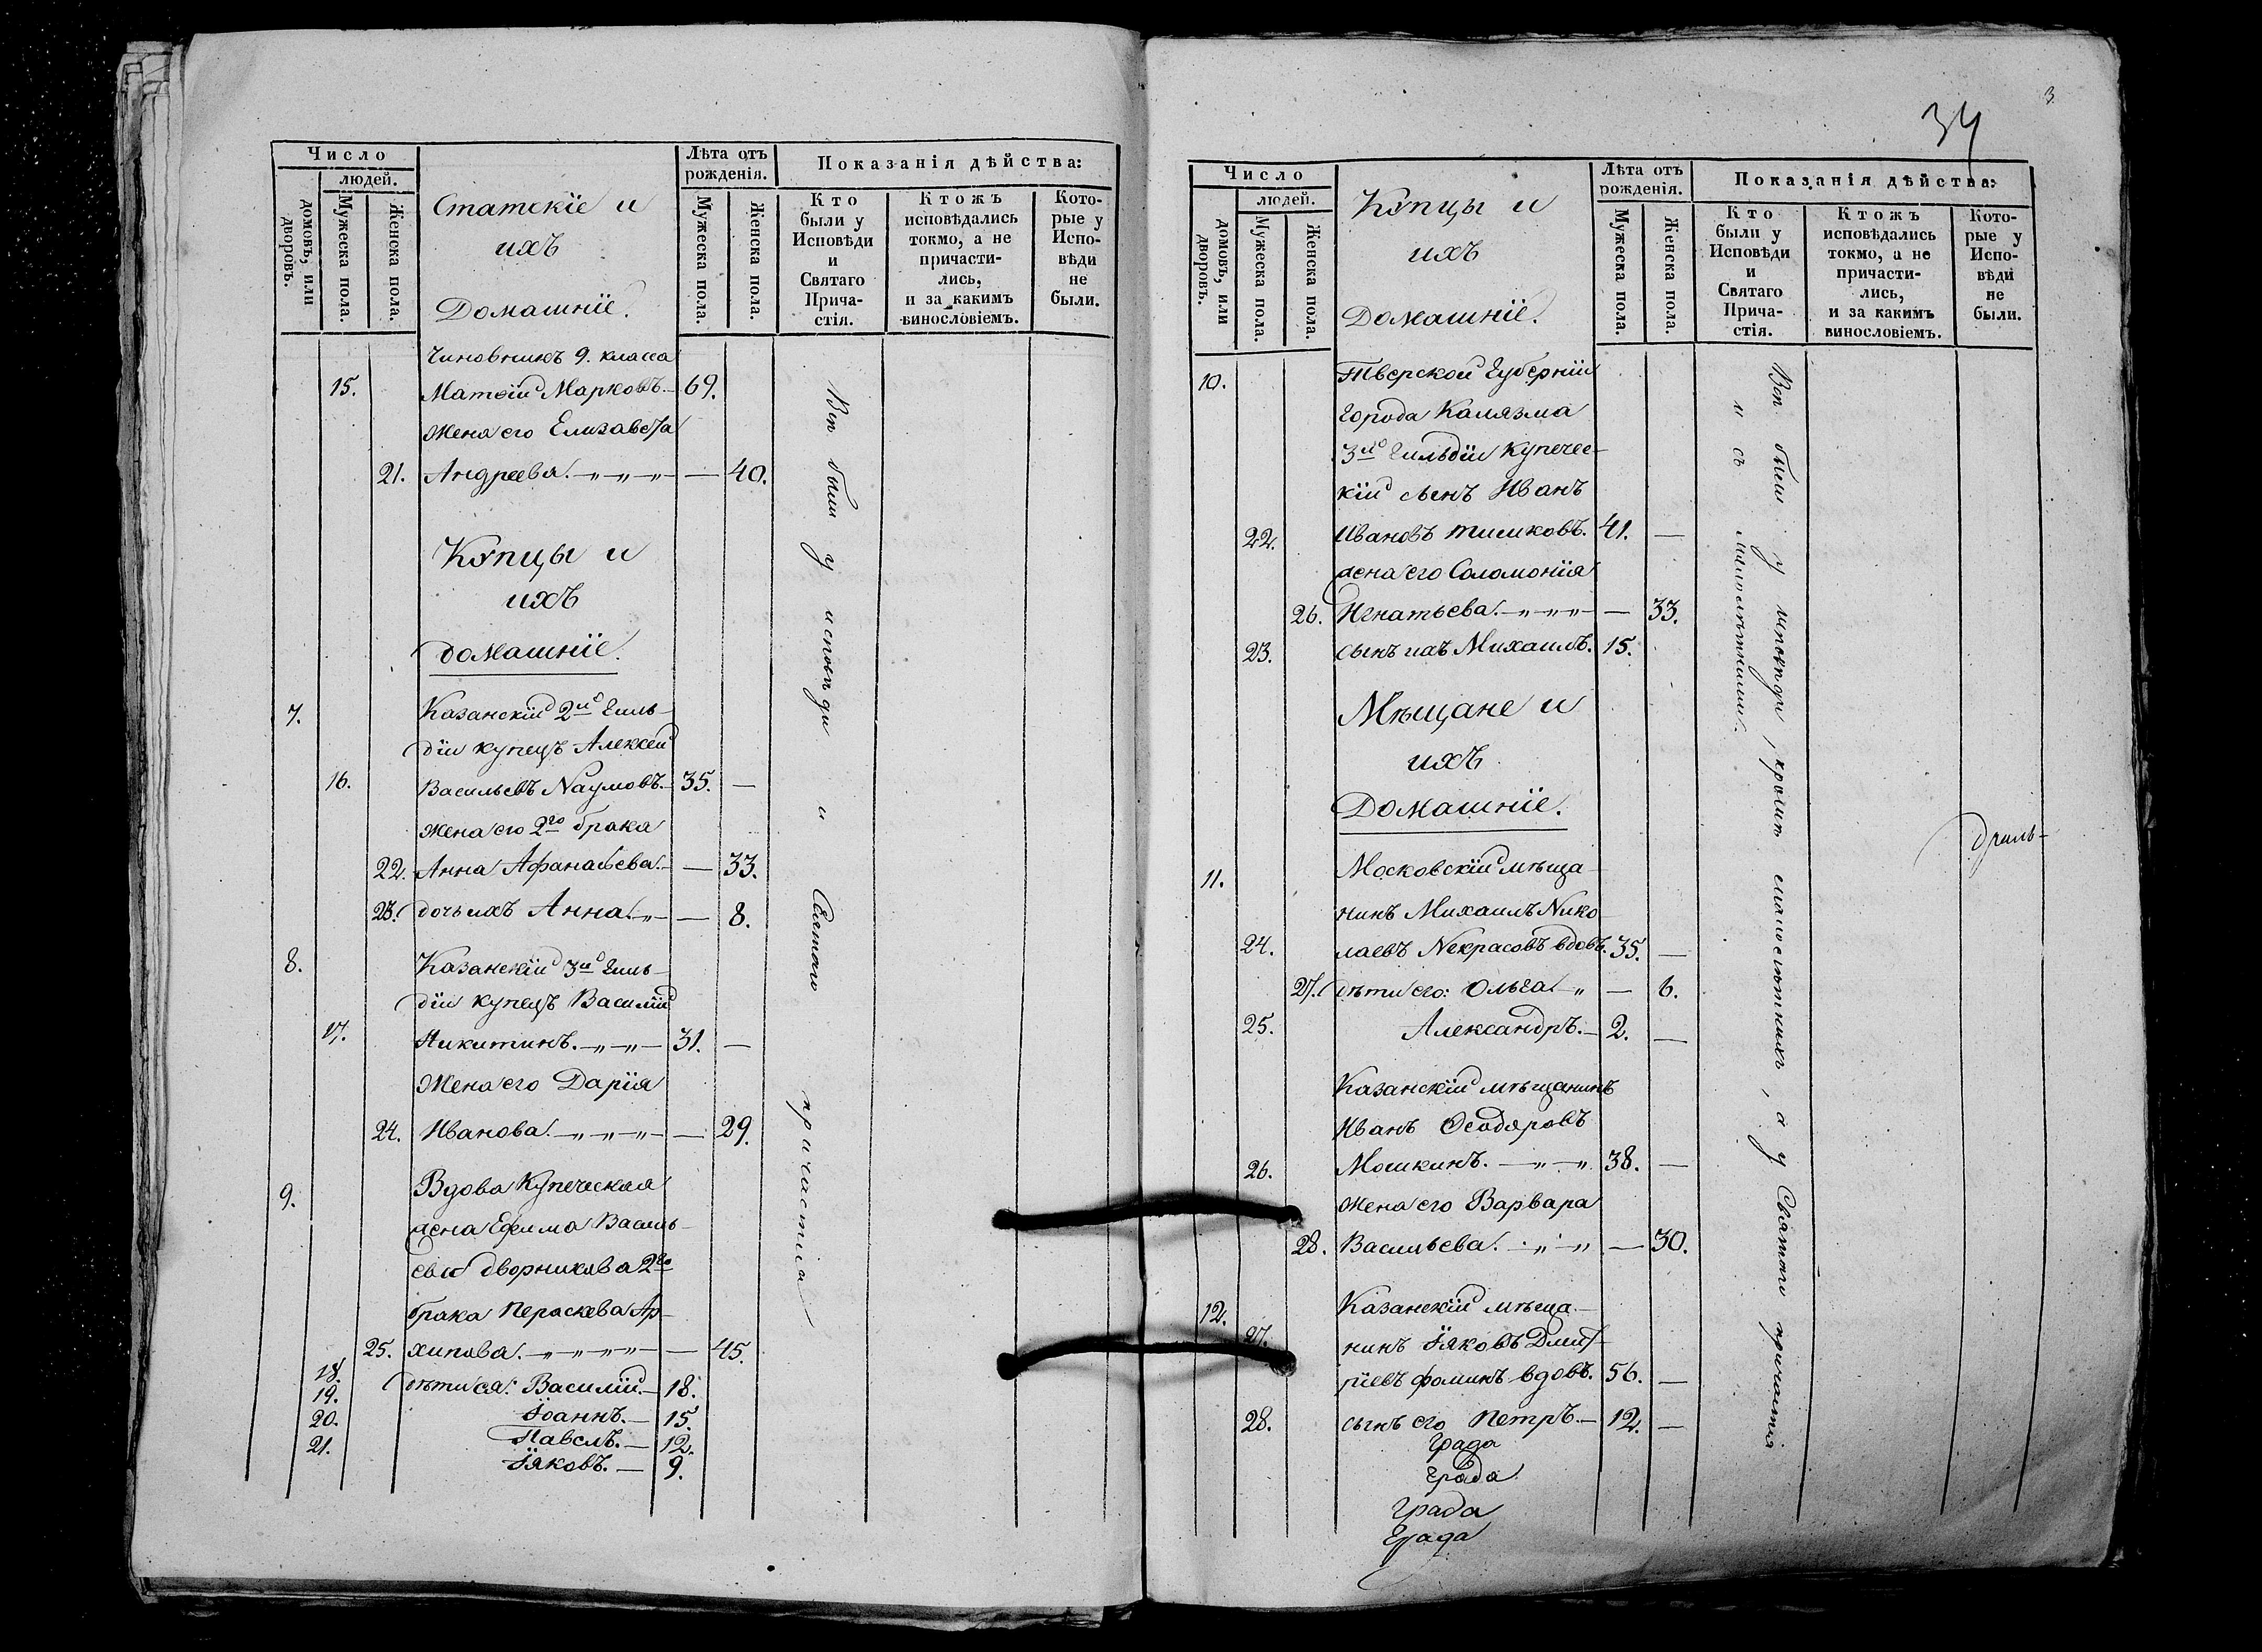 Число
людей.
домовъ, или дворовъ.
Мужеска пола.
Женска пола.
Статскіе и
ихъ
Домашніе.
Лѣта отъ
рожденія.
Мужеска пола.
Женска пола.
Показанія дѣйства:
Кто
были у
Исповѣди
и
Святаго
Прича-
стія.
Ктожъ
исповѣдались
токмо, а не
причасти-
лись,
и за какимъ
винословіемъ.
Кото-
рые у
Испо-
вѣди
не
были.
Чиновникъ 9. класса
15. Матѳій Марковъ.— 69.
Жена его Елизавета
21. Андреева. — 40.
Купцы и
ихъ
домашніе.
7. Казанскій 2й Гиль-
діи купецъ Алексей
16. Васильевъ Наумовъ.— 35. —
Жена его 2го брака
22. Анна Афанасьева. — 33.
23. дочь ихъ Анна. „ — 8.
8. Казанскій 3й Гиль-
діи купецъ Василій
17. Никитинъ. — „ — „ — 31. —
Жена его Дарія
24. Иванова. — „ — „ — „ — 29.
9. Вдова Купеческая
жена Ефима Василь-
ева Дворникова 2го
брака Параскева Ар-
25. хипова. — „ — „ — „ — 45.
18. дѣти ея: Василій.— 18.
19. Іоаннъ.— 15.
20. Павелъ.— 12.
21. Іяковъ.— 9.
Всѣ были у исповѣди и Святаго причастия
34
3
Число
людей.
домовъ, или дворовъ.
Мужеска пола.
Женска пола.
Купцы и
ихъ
Домашніе.
Лѣта отъ
рожденія.
Мужеска пола.
Женска пола.
Показанія дѣйства:
Кто
были у
Исповѣди
и
Святаго
Прича-
стія.
Ктожъ
исповѣдались
токмо, а не
причасти-
лись,
и за какимъ
винословіемъ.
Кото-
рые у
Испо-
вѣди
не
были.
10. Тверской Губерніи
города Калязина
3й Гильдіи Купечес-
кій сынъ Иванъ
22. Ивановъ 41. —
жена его Соломонія
26. Игнатьева. — „ — „ — 33.
23. сынъ ихъ Михаилъ. 15.
Мѣщане и
ихъ
Домашніе.
11. Московскій мѣща-
нинъ Михаилъ Нико-
24. лаевъ Некрасовъ вдовъ. 35. —
27. дѣти его: Ольга. „ — 6.
25. Александръ.— 2. —
Казанскій мѣщанинъ
Иванъ Ѳеодоровъ
26. Мошкинъ. — „ — „ 38. —
Жена его Варвара
28. Васильева. — „ — „ — 30.
12. Казанскій мѣща-
27. нинъ Іяковъ Дмит-
ріевъ Фоминъ вдовъ. 56. —
28. сынъ его Петръ.— 12. —
Града
Града
Града
Града
Всѣ были у исповѣди, кромѣ малолѣтнихъ, а у Святаго причастія
и съ малолѣтними.